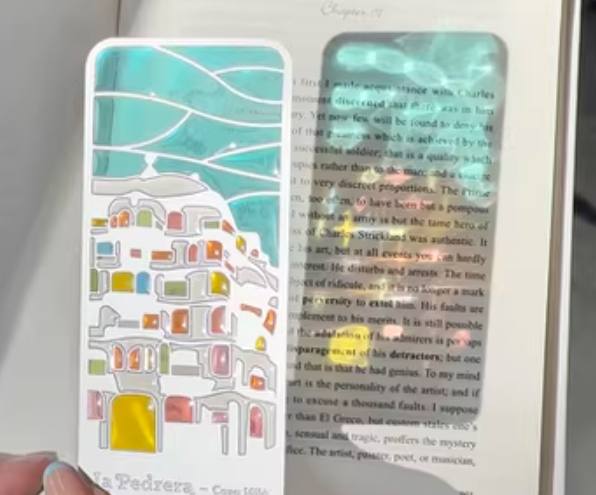 Chapter
first I made acquaintance with Charles
moment discerned that there was in him
ry. Yet now few will be found to deny his
of that greatness which is achieved by the
successful soldier; that is a quality which
upies rather than to the man; and a
to very discreet proportions. The Prime
en, too often, to have been but a pompous
without an army is but the tame hero of
ss of Charles Strickland was authentic. It
his art, but at all events you can hardly
interest. He disturbs and arrests. The time
object of ridicule, and it is no longer a mark
perversity to extol him. His faults are
mplement to his merits. It is still possible
the adulation of his admirers is perhaps
sparagement of his detractors; but one
nd that is that he had genius. To my mind
art is the personality of the artist; and if
to excuse a thousand faults. I suppose
r than El Greco, but custom stales one's
sensual and tragic, proffers the mystery
fice. The artist, painter, poet, or musician,
la Pedrera – Casa Milà